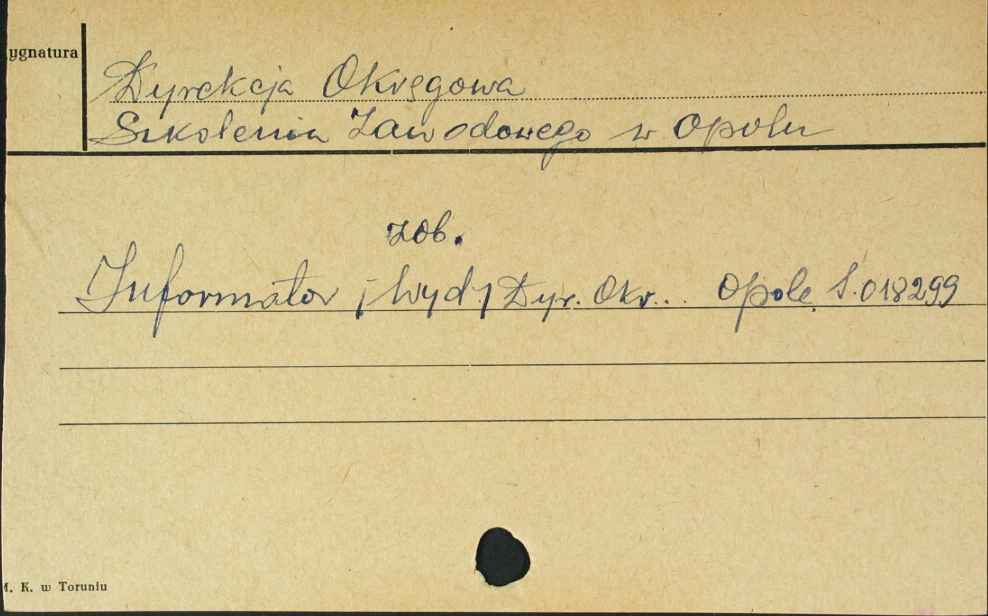 ygnatura
Dyrekcja Okręgowa
Szkolenia Zawodowego w Opolu
zob.
Informator /Wyd/ Dyr. Okr... Opole S.018299
M. K. w Toruniu